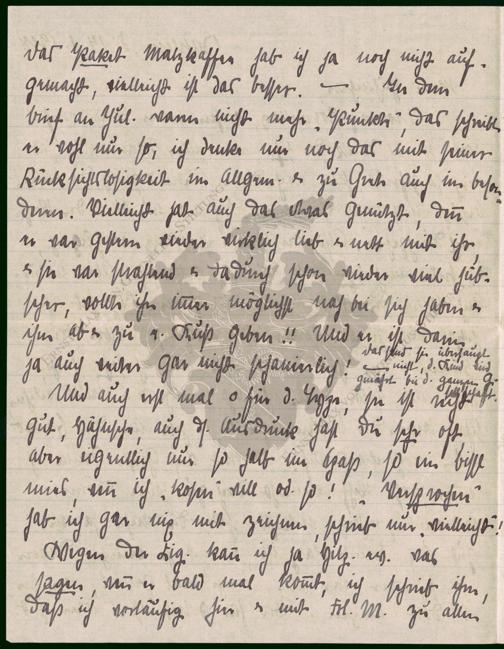 das Paket Malzkaffee hab ich ja noch nicht auf-
gemacht, vielleicht ist das besser. — In dem
brief an Jul. waren nicht mehr „Punkte", das schreibt
er wohl nur so, ich denke nur noch das mit seiner
Rücksichtslosigkeit im Allgem. & zu Grete auch im beson-
deren. Vielleicht hat auch das etwas genützt, denn
er war gestern wieder wirklich lieb & nett mit ihr
& sie war strahlend & dadurch schon wieder viel hüb-
scher, wollte ihn immer möglichst nah bei sich haben &
ihm ab & zu e. Kuß geben!! Und er ist darin
ja auch weiter gar nicht schanierlich!
das stand sie überhaupt
nicht, d. Kind sind
bei d. ganzen Ge-
sellschaft.
Und auch erst mal o für d. Skizze, sie ist recht
gut, Hähnsche, auch d. Ausdruck hast Du sehr oft
aber eigentlich nur so halb im Spaß, so ein bissl
mies, wenn ich „kosen" will od. so! „Versprochen"
hab ich gar nix mit zeichnen, schrieb nur „vielleicht"!
Wegen der Zig. kann ich ja Hilg. ev. was
sagen, wenn er bald mal kommt, ich schrieb ihm,
daß ich vorläufig hier & mit Frl. M. zu allen